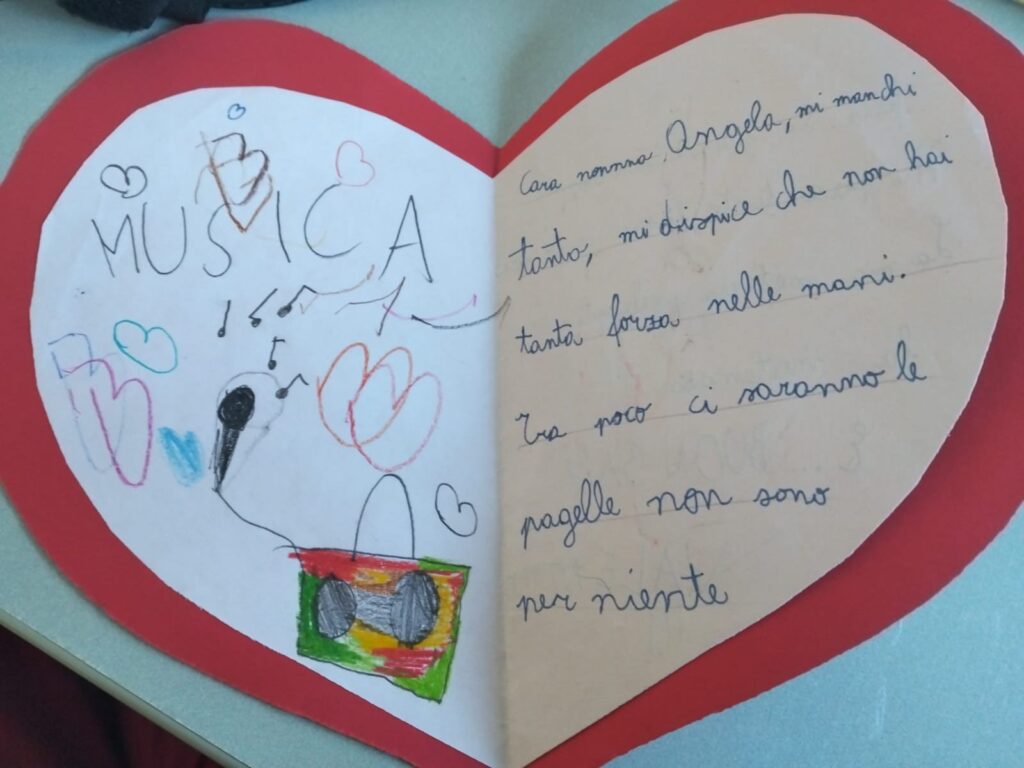 MUSICA
Cara nonnna Angela, mi manchi
tanto, mi drispice che non hai
tanta forza nelle mani.
Tra poco ci saranno le
pagelle non sono
per niente